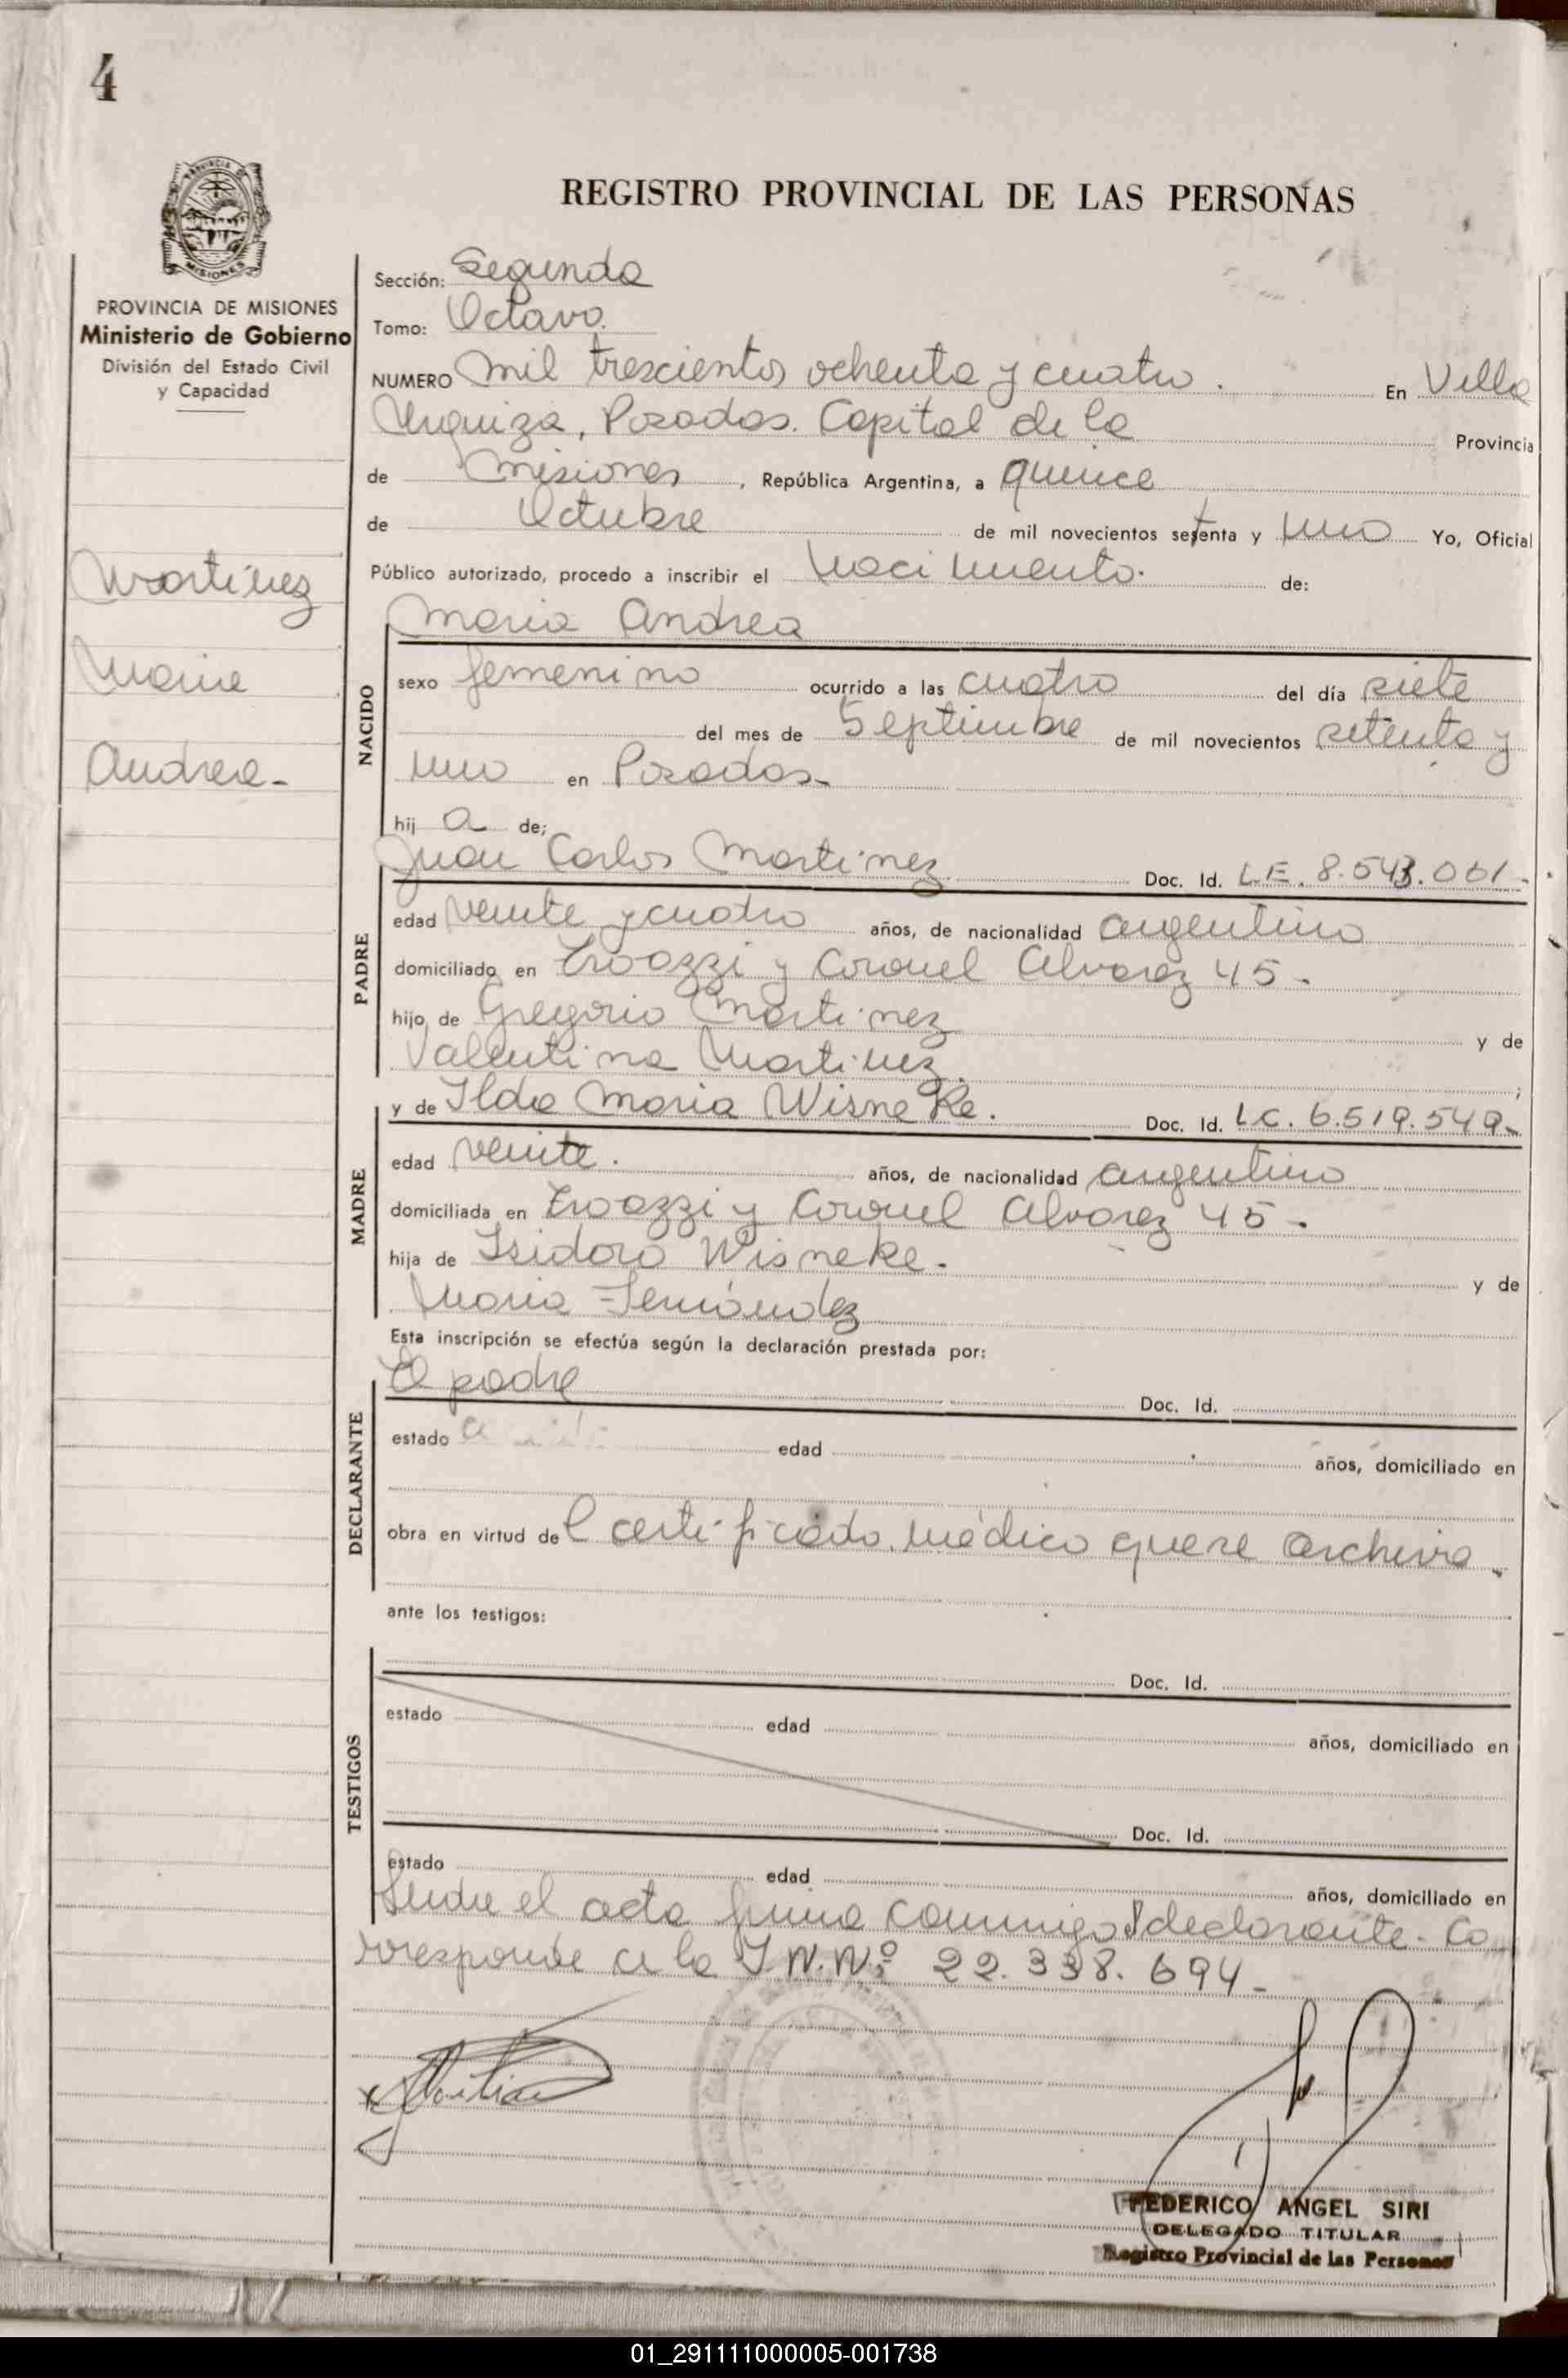 4
REGISTRO PROVINCIAL DE LAS PERSONAS
PROVINCIA DE MISIONES
Ministerio de Gobierno
División del Estado Civil
y Capacidad
Martinez
Maria
Andrea-
Sección: Segunda
Tomo: Octavo.
NUMERO mil trescientos ochenta y cuatro. En Villa
Urquiza, Posadas. Capital de la Provincia
de Misiones, República Argentina, a quince
de Octubre de mil novecientos setenta y uno Yo, Oficial
Público autorizado, procedo a inscribir el Nacimiento. de:
Maria Andrea
NACIDO
sexo femenino ocurrido a las cuatro del día siete
del mes de Septiembre de mil novecientos setenta y
uno en Posadas-
hij a de;
Juan Carlos Martinez Doc. Id. L.E. 8.543.001-
PADRE
edad veinte y cuatro años, de nacionalidad argentino
domiciliado en y Coronel Alvarez 45-
hijo de Gregorio Martinez y de
Valentina Martinez. ;
MADRE
y de Ilda Maria Wisneke. Doc. Id. L.C. 6.519.549-
edad veinte. años, de nacionalidad argentina
domiciliada en y Coronel Alvarez 45-
hija de Isidoro Wisneke- y de
Maria Fernández
Esta inscripción se efectúa según la declaración prestada por:
DECLARANTE
El padre Doc. Id.
estado edad años, domiciliado en
obra en virtud del certificado médico que se archiva-
ante los testigos:
TESTIGOS
Doc. Id.
estado edad años, domiciliado en
Doc. Id.
estado edad años, domiciliado en
el acta firma conmigo el declarante- Co
rresponde a la I.N.Nº 22.338.694-
FEDERICO ANGEL SIRI
DELEGADO TITULAR
Registro Provincial de las Personas
01_291111000005-001738